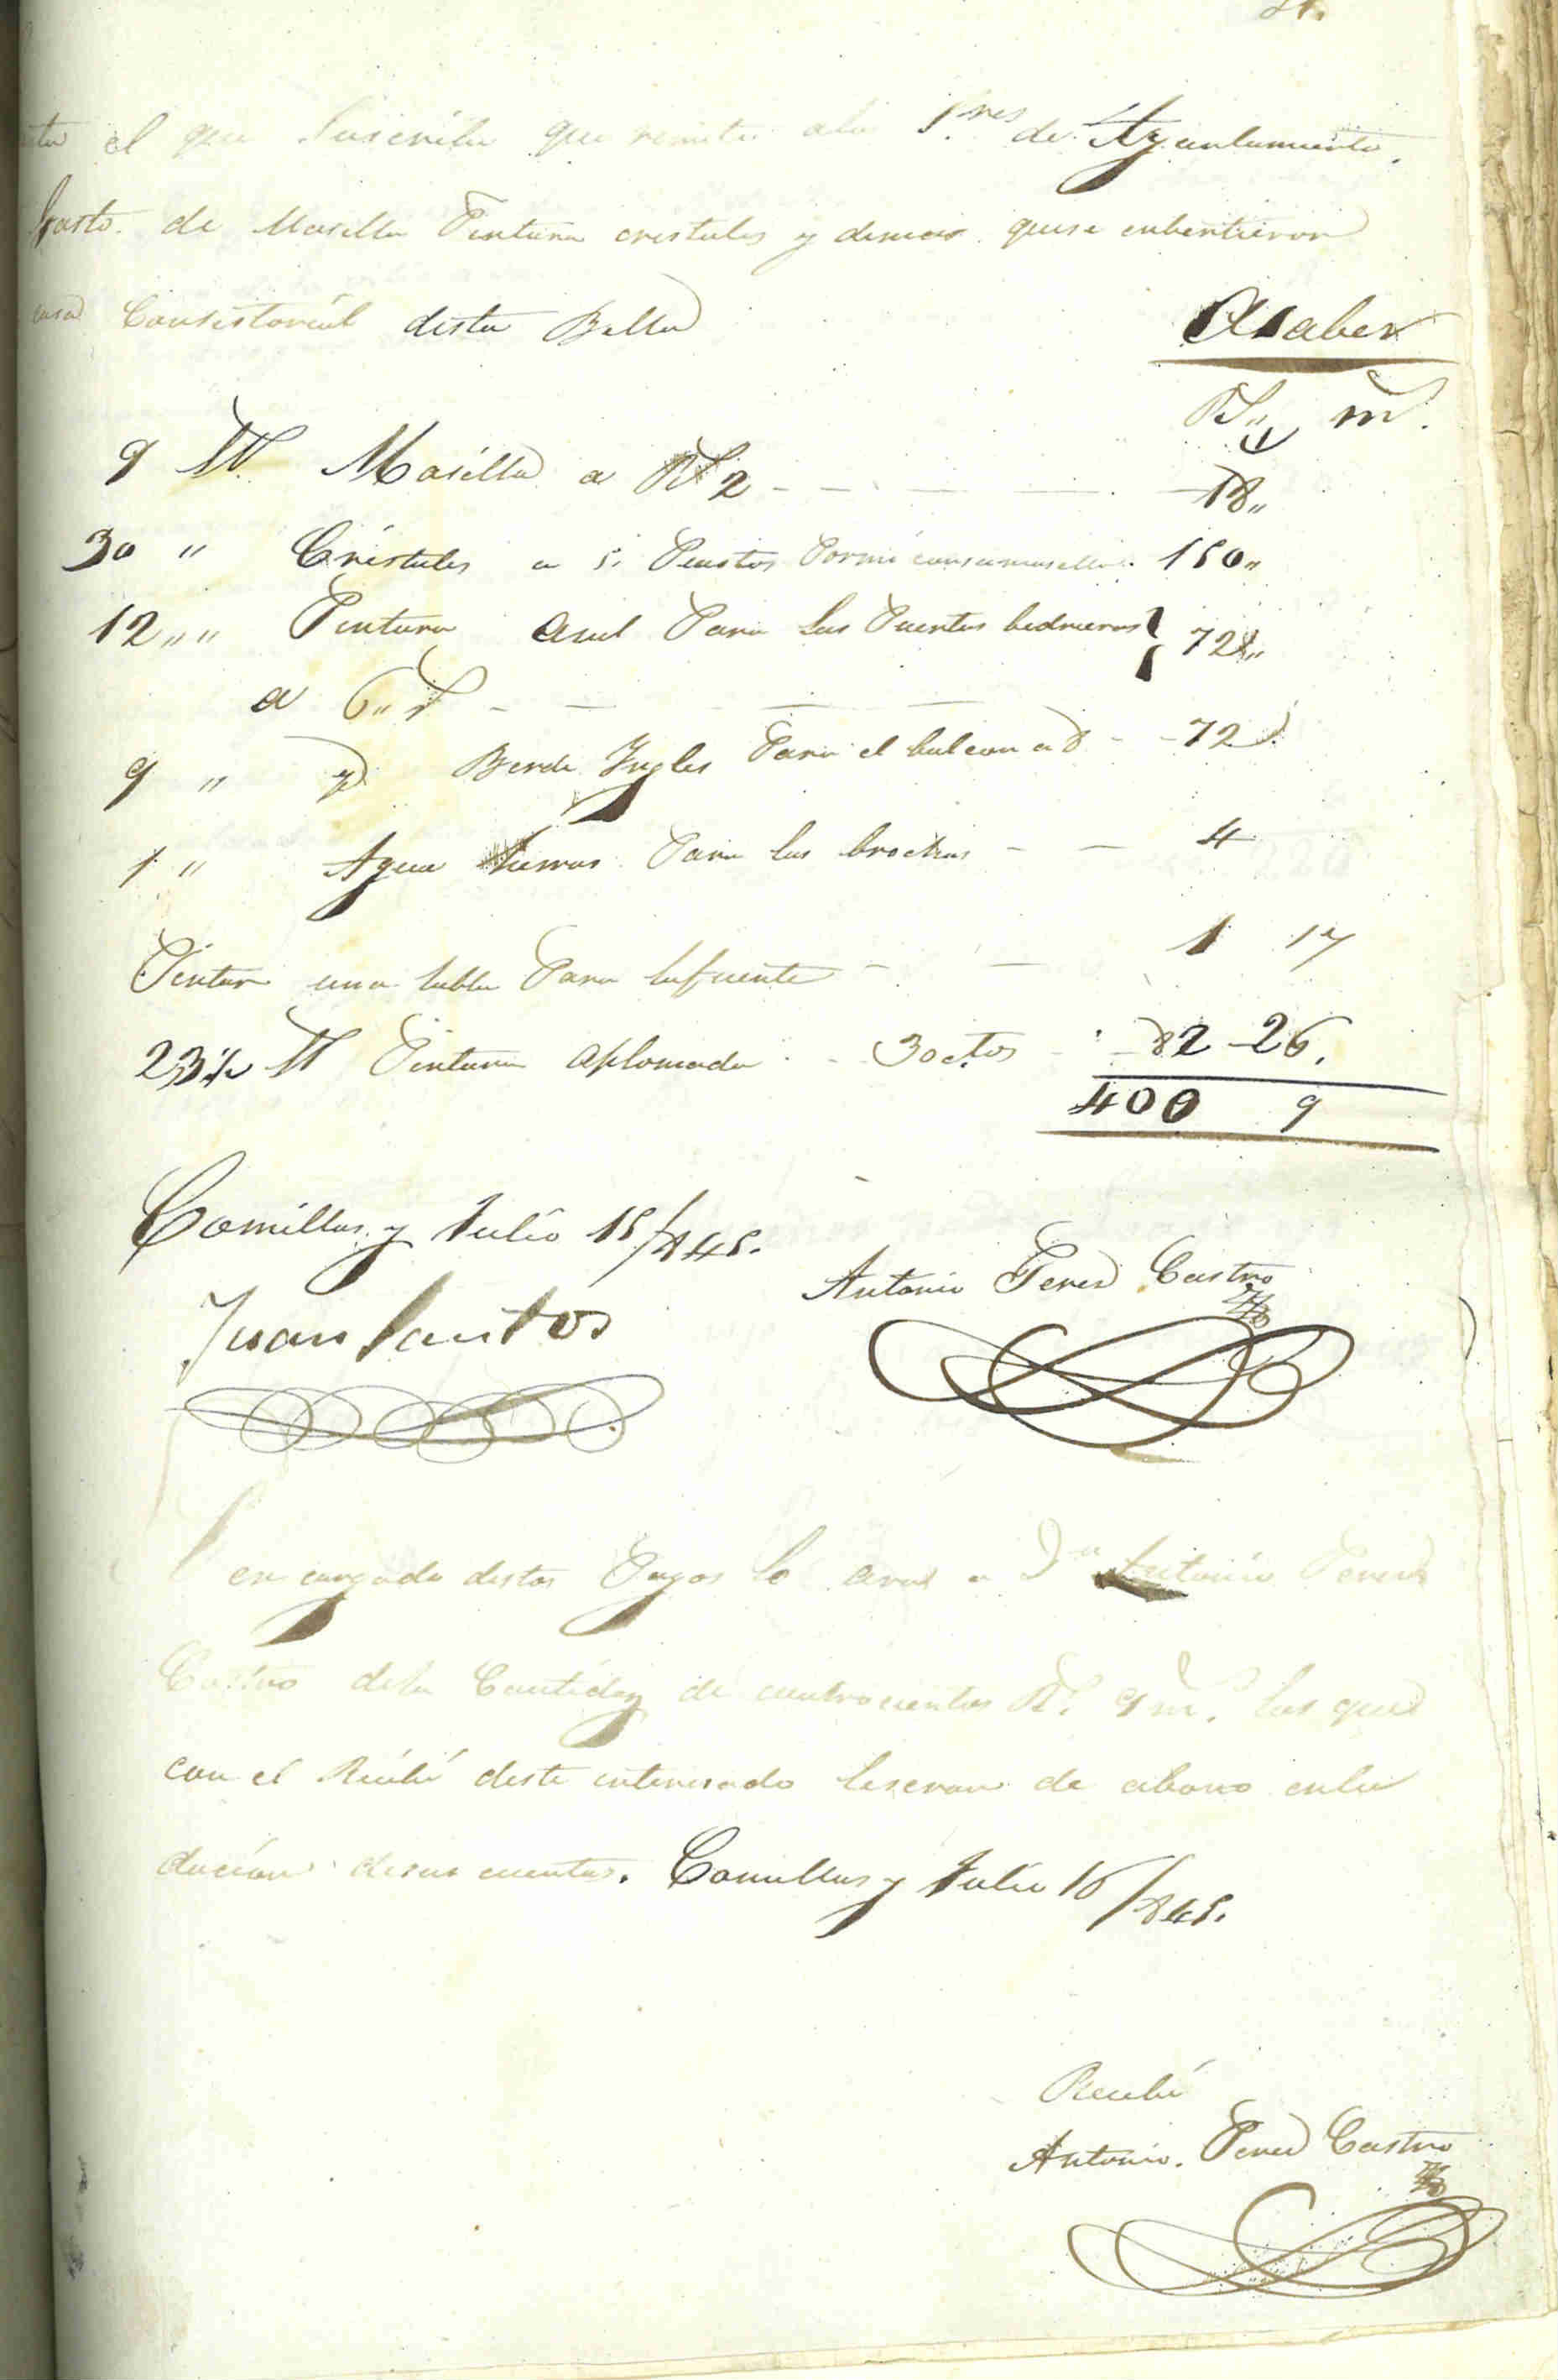 el que Suscribe que remite alos S.res de Ayuntamiento.
Gasto de Masilla Pintura cristales y demas quese enbentieron
casa Consistorial desta Billa
Asaber
Rs,, m.s
9 ℔ Masilla a Rs 2 - - - 18,,
30 " Cristales a 5 Puestos Pormi consumasilla. 150,,
12 ,, ,, Pintura Asul Para las Puertas bedrieras } 72,,
a 6,, rs - - - -
9 " yd Berde Yngles Para el balcon a 8 - - 72
1 " Agua Para las brochas - - 4
Pintar una tabla Para lafuente - - 1 17
23½ ℔ Pintura Aplomada - 30 ctos - 82 - 26.
400 9
Comillas y Julio 15/845.
Antonio Perez Castro
Juan Santos
encargado destos Pagos le ara a Dn Antonio Perez
Castro dela Cantidaz de cuatrocientos Rs. 9 ms. los que
con el Recibi deste interesado leseran de abono enla
dacion desus cuentas. Comillas y Julio 16/845.
Recibi
Antonio. Perez Castro